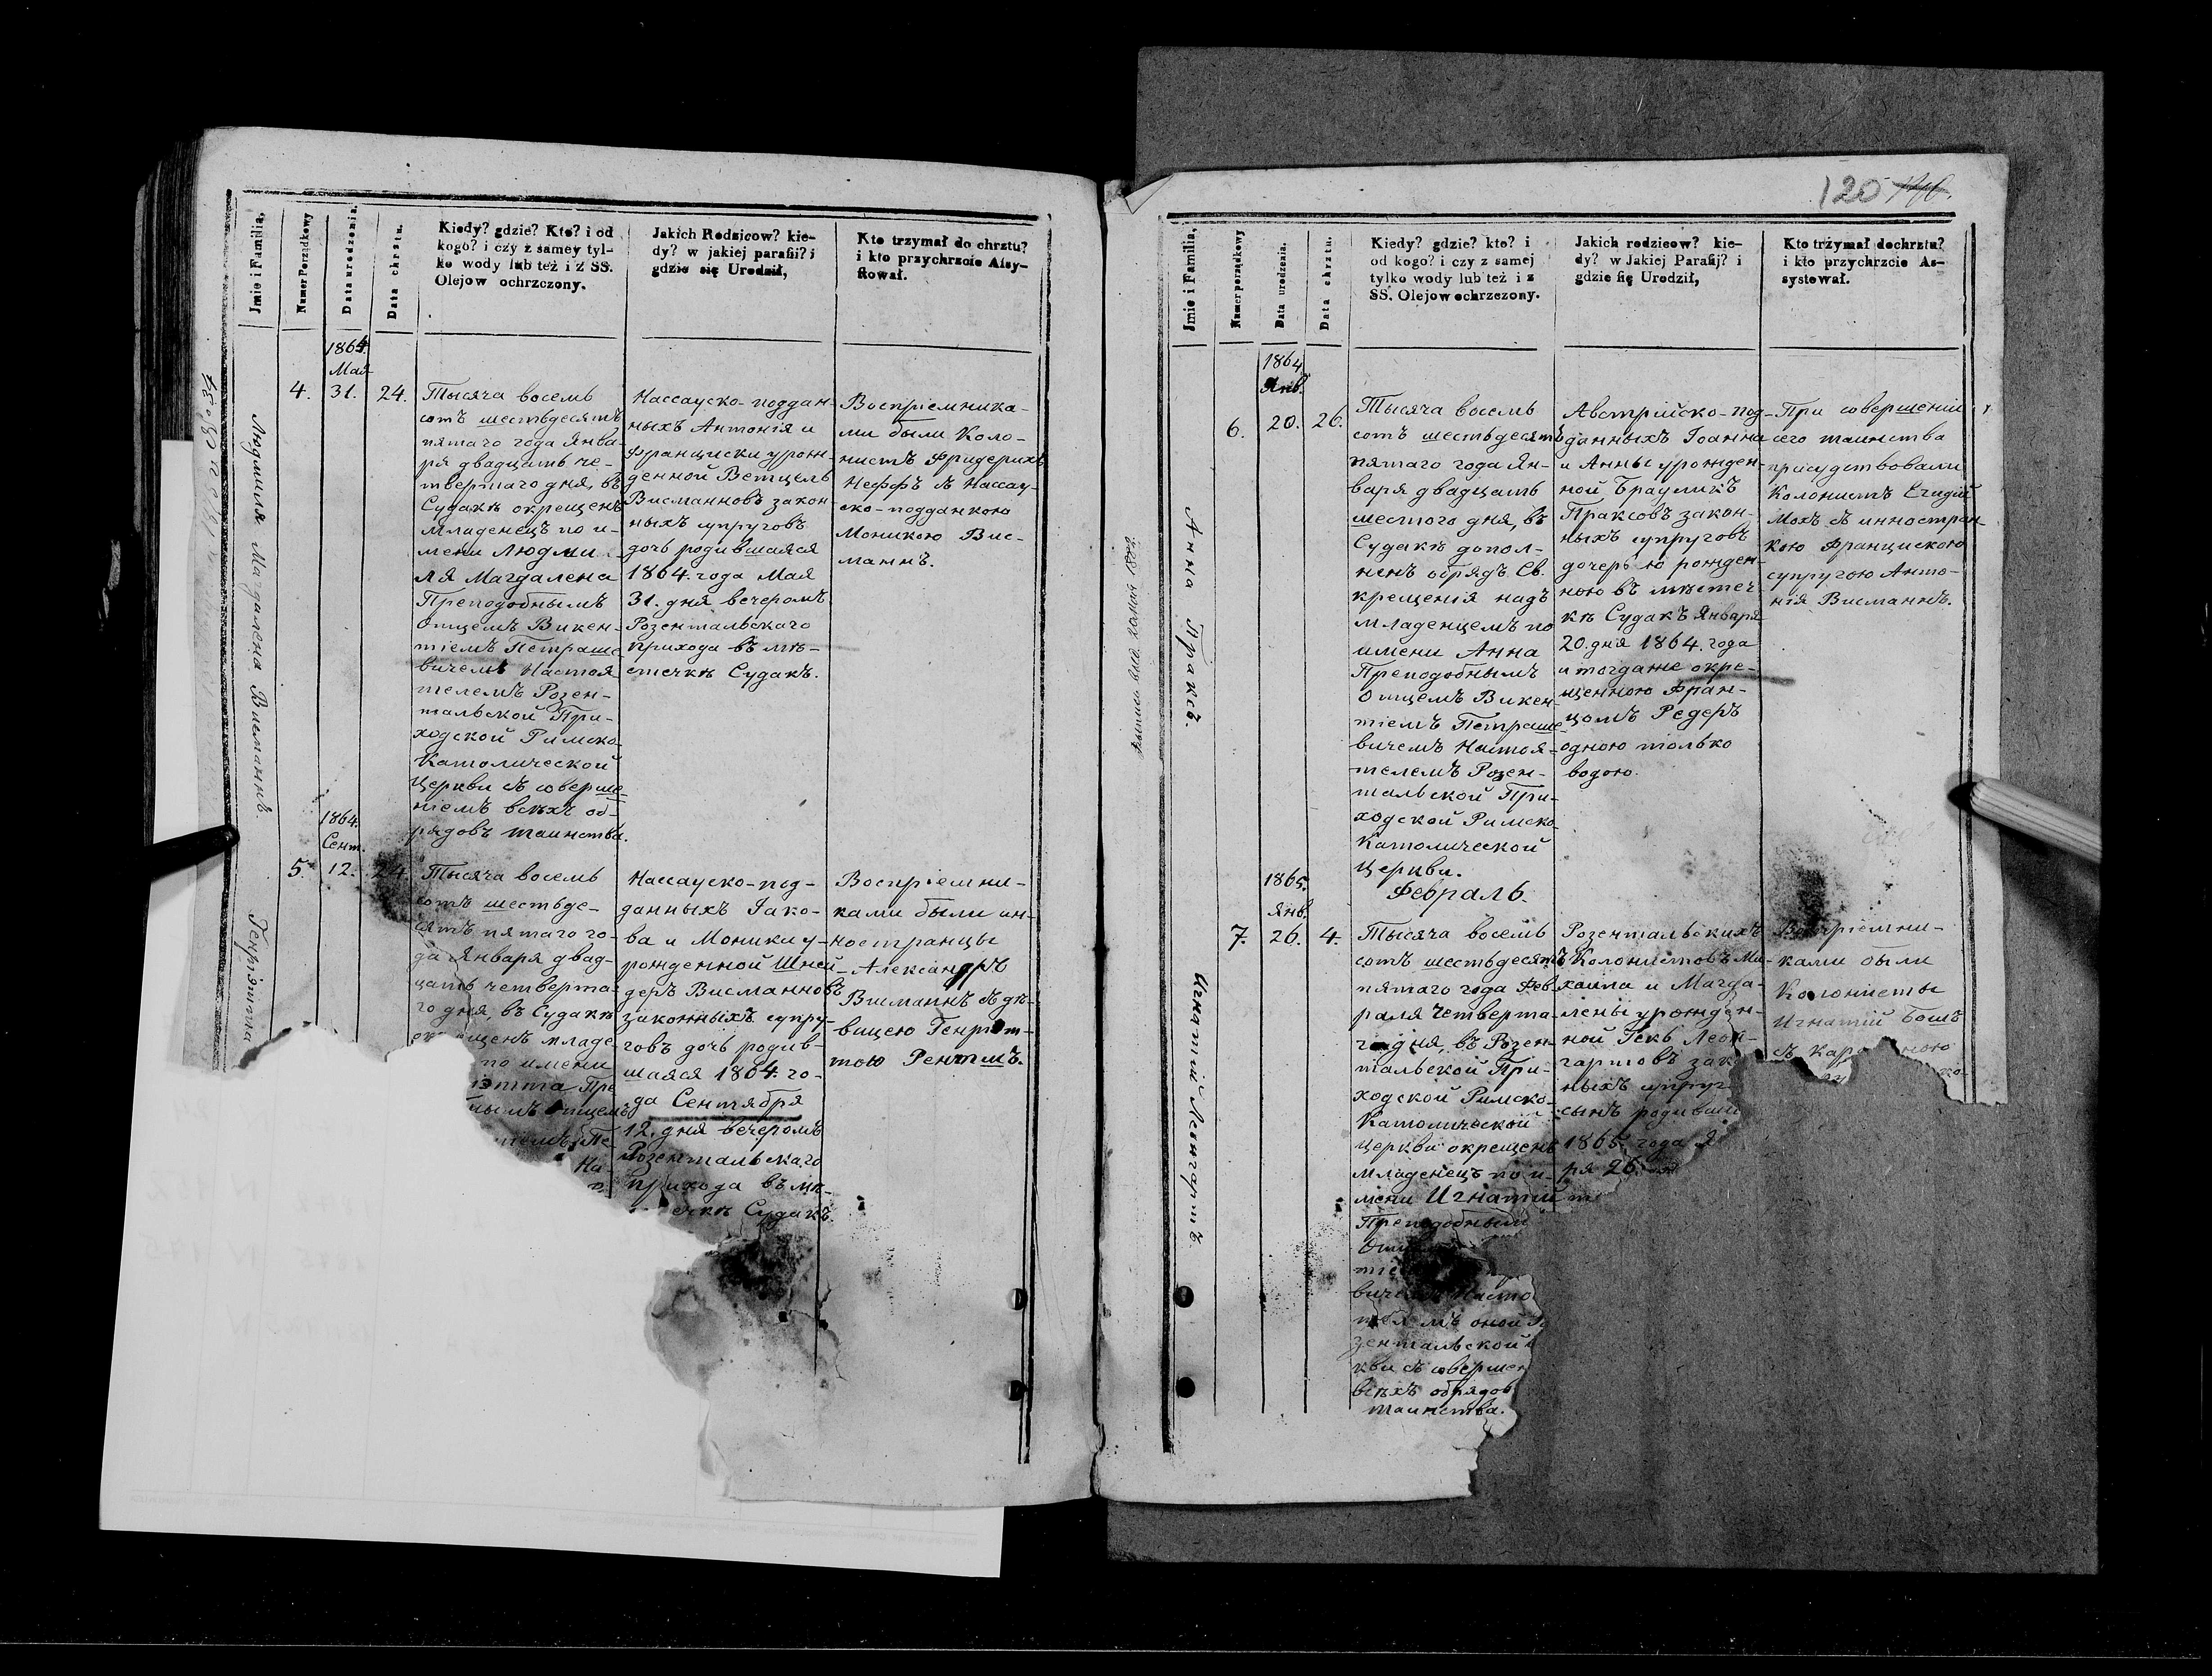 Jmie i Familia,
Numer Porządkowy
Data urodzenia.
Data chrztu.
Kiedy? gdzie? Kto? i od
kogo? i czy z samey tyl-
ko wody lub też i z SS.
Olejow ochrzczony.
Jakich Rodzicow? kie-
dy? w jakiej parafii? i
gdzie się Urodził,
Kto trzymał do chrztu?
i kto przychrzcie Assy-
stował.
Людмилѧ Магдалена Висманнъ.
1864.
Мая
4. 31. 24.
Тысяча восемь
сотъ шестьдесятъ
пятаго года Янва-
ря двадцать че-
твертаго дня, въ
Судакѣ окрещенъ
младенецъ по и-
мени Людми-
ля Магдалена
Преподобнымъ
Отцемъ Викен-
тіемъ Петраше-
вичемъ Настоя-
телемъ Розен-
тальской При-
ходской Римско-
Католической
Церкви съ соверше-
ніемъ всѣхъ об-
рядовъ таинства.
Нассауско-поддан-
ныхъ Антонія и
Франциски урож-
денной Ветцель
Висманновъ закон-
ныхъ супруговъ
дочь родившаяся
1864. года Мая
31. дня вечеромъ
Розентальскаго
прихода въ мѣ-
стечкѣ Судакъ.
Воспріемника-
ми были Коло-
нистъ Фридерихъ
Неффъ съ Нассау-
ско-подданкою
Моникою Вис-
маннъ.
Генріэтта
1864.
Сент.
5. 12. 24
Тысяча восемь
сотъ шестьде-
сятъ пятаго го-
да Января двад-
цать четверта-
го дня, въ Судакѣ
окрещенъ младе-
по имени
іэтта Пре
нымъ Отцемъ
тіемъ Пе-
На-
Нассауско-под-
данныхъ Іако-
ва и Моники у-
рожденной Шней-
деръ Висманновъ
законныхъ супру-
говъ дочь родив-
шаяся 1864. го-
да Сентября
12. дня вечеромъ
Розентальскаго
прихода въ мѣ-
ечкѣ Судакъ.
Воспріемни-
ками были ин-
ностранцы
Александръ
Висманнъ съ дѣ-
вицею Генріэт-
тою Рентшъ.
120
Jmie i Familia,
Numer porządkowy
Data urodzenia.
Data chrztu.
Kiedy? gdzie? kto? i
od kogo? i czy z samej
tylko wody lub też i z
SS. Olejow ochrzczony.
Jakich rodzicow? kie-
dy? w Jakiej Parafij? i
gdzie się Urodził,
Kto trzymał dochrztu?
i kto przychrzcie As-
systował.
Анна Праксъ.
1864
Янв.
6. 20. 26.
Тысяча восемь
сотъ шестьдесятъ
пятаго года Ян-
варя двадцать
шестого дня, въ
Судакѣ допол-
ненъ обрядъ Св.
крещенія надъ
младенцемъ по
имени Анна
Преподобнымъ
Отцемъ Викен-
тіемъ Петраше-
вичемъ Настоя-
телемъ Розен-
тальской При-
ходской Римско-
Католической
Церкви.
Австрійско-под-
данныхъ Іоанна
и Анны урожден-
ной Брауликъ
Праксовъ закон-
ныхъ супруговъ
дочерью рожден-
ною въ мѣстеч-
кѣ Судакъ Января
20. дня 1864. года
и тогдаже окре-
щенною Фран-
цомъ Редеръ
одною только
водою.
При совершеніи
сего таинства
присудствовали
Колонистъ Егидій
Мохъ съ инностран-
кою Францискою
супругою Анто-
нія Висманнъ.
Февраль.
Игнатій Леонгартъ.
1865.
Янв.
7. 26. 4.
Тысяча восемь
сотъ шестьдесятъ
пятаго года Фев-
раля четверта-
го дня, въ Розен-
тальской При-
ходской Римско-
Католической
Церкви окрещенъ
младенецъ по и-
мени Игнатій
Преподобным
Отц
тіе
вичемъ Насто
телемъ оной Ро
зентальской
кви съ совершен
всѣхъ обрядов
таинства.
Розентальскихъ
Колонистовъ Ми-
хаила и Магда-
лены урожден-
ной Гекъ Леон-
гартовъ зако
ныхъ супруг
сынъ родивші
1865. года Я
ря 26.
Воспріемни-
ками были
Колонисты
Игнатій Бошъ
съ Каро ною